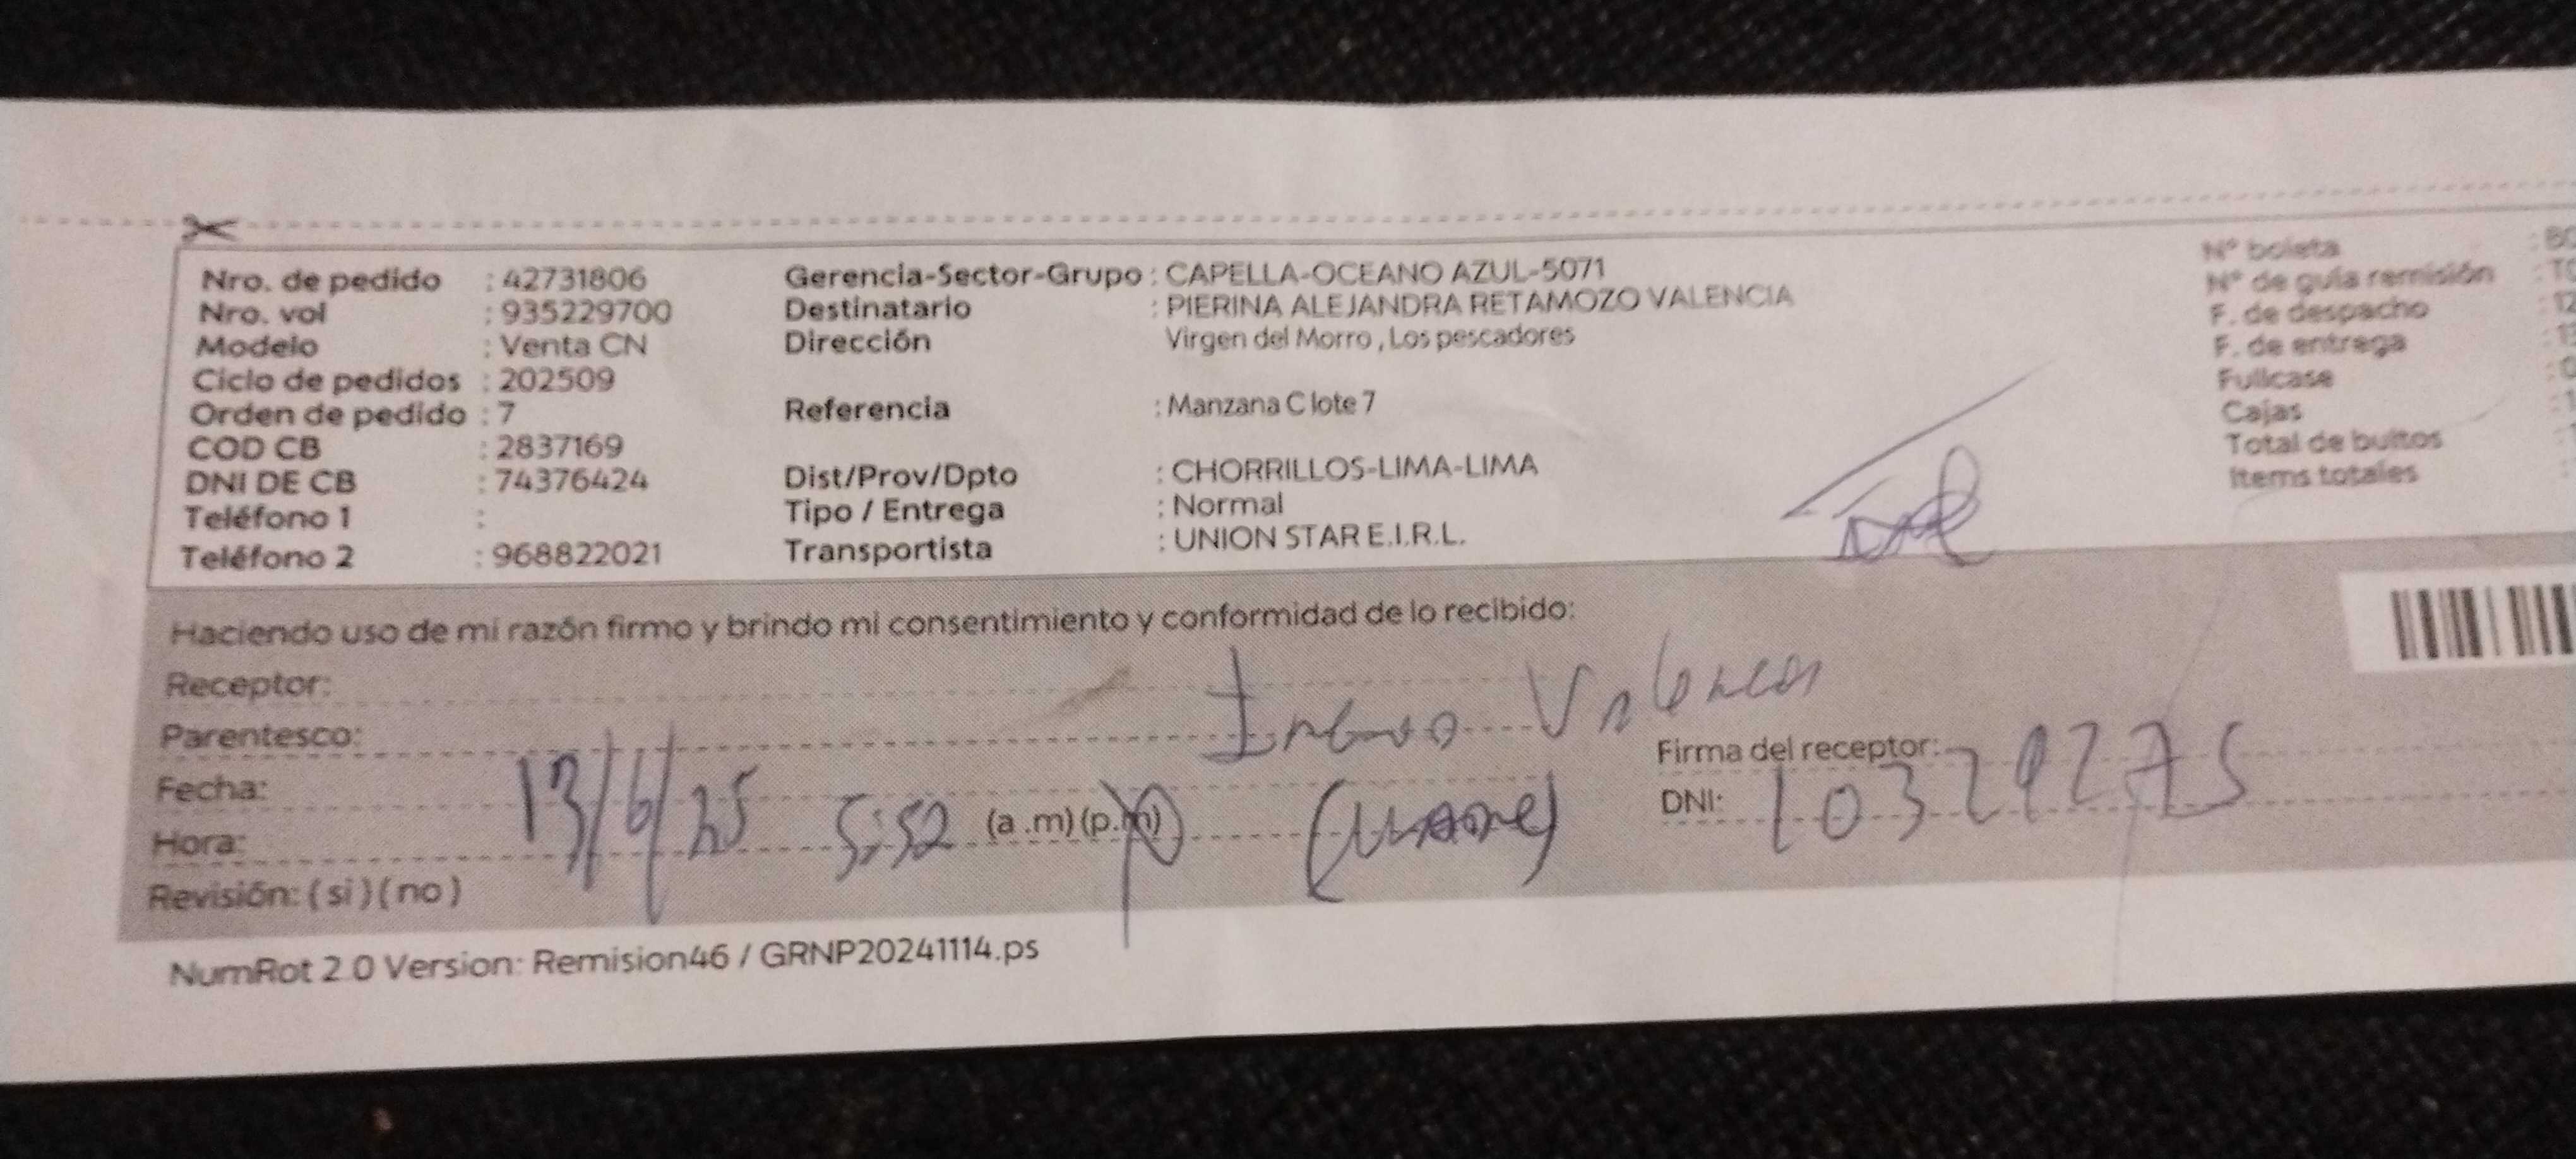 Nro. de pedido : 42731806
Nro. vol : 935229700
Modelo : Venta CN
Ciclo de pedidos : 202509
Orden de pedido : 7
COD CB : 2837169
DNI DE CB : 74376424
Teléfono 1 :
Teléfono 2 : 968822021
Gerencia-Sector-Grupo : CAPELLA-OCEANO AZUL-5071
Destinatario : PIERINA ALEJANDRA RETAMOZO VALENCIA
Dirección Virgen del Morro , Los pescadores
Referencia : Manzana C lote 7
Dist/Prov/Dpto : CHORRILLOS-LIMA-LIMA
Tipo / Entrega : Normal
Transportista : UNION STAR E.I.R.L.
N° boleta :
N° de guía remisión :
F. de despacho :
F. de entrega :
Fullcase :
Cajas :
Total de bultos :
Items totales :
Haciendo uso de mi razón firmo y brindo mi consentimiento y conformidad de lo recibido:
Receptor:
Parentesco: Valencia
Fecha: 13/6/25
Firma del receptor:
Hora: 5:52 (a .m) (p.m)
DNI:
Revisión: ( si ) ( no )
NumRot 2.0 Version: Remision46 / GRNP20241114.ps